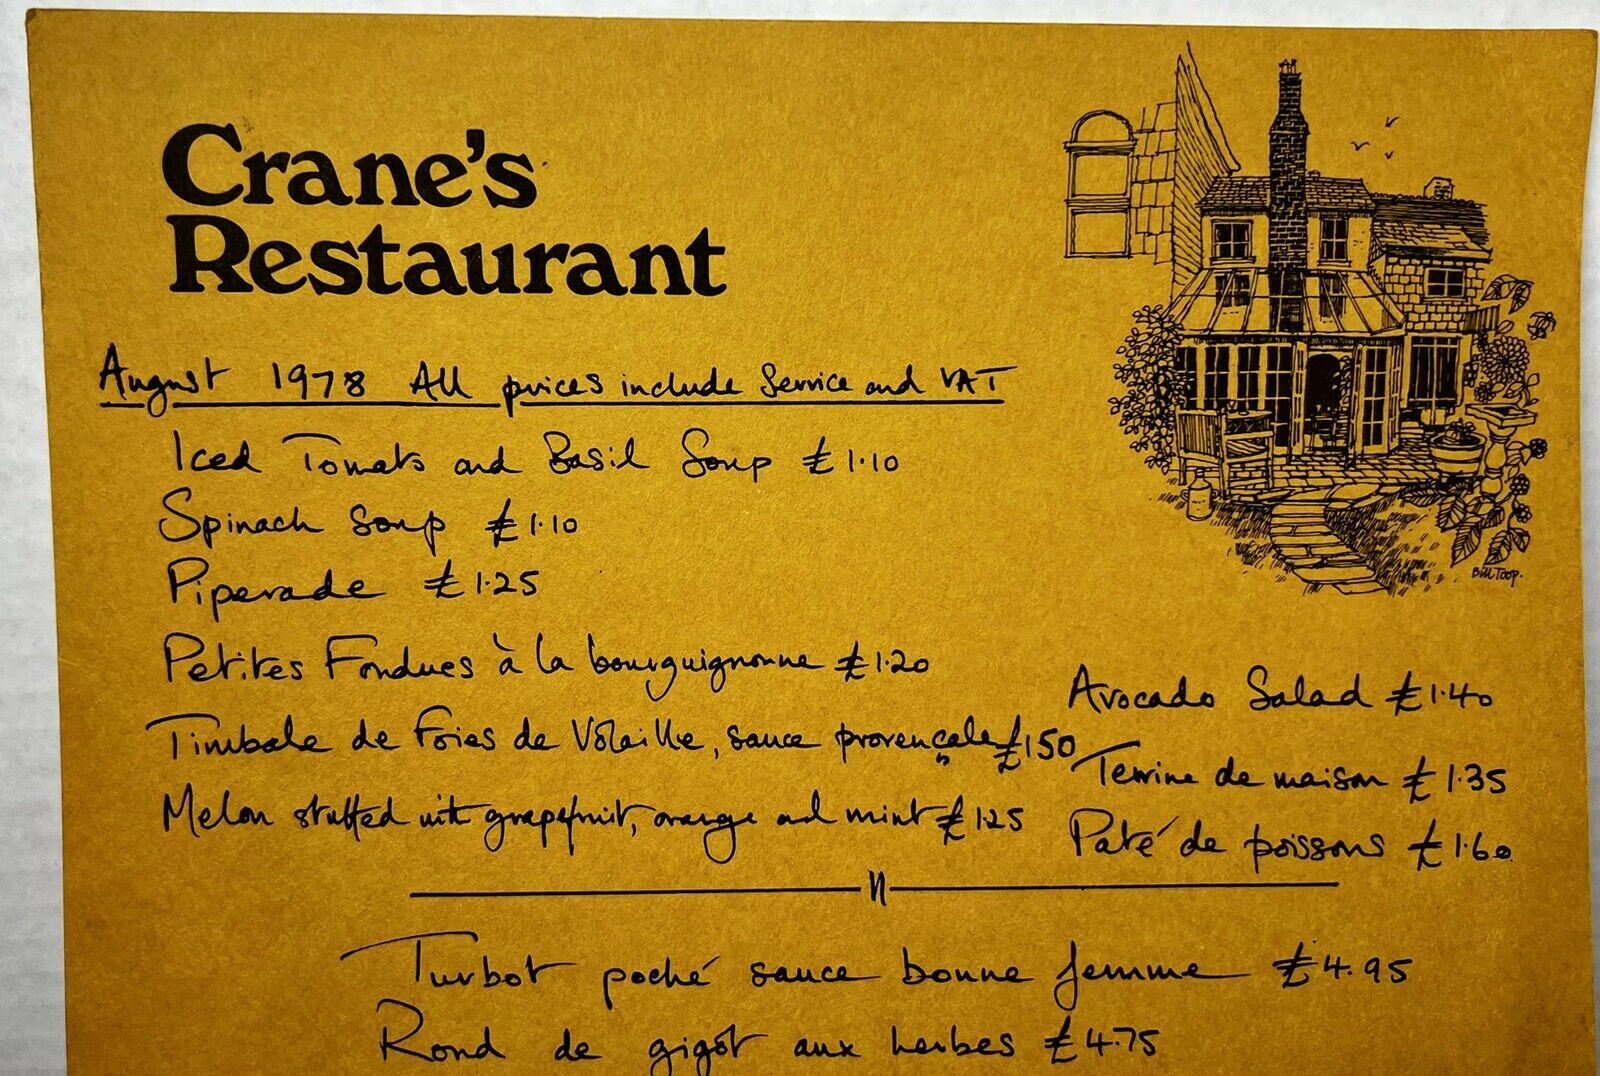 Crane's
Restaurant
August 1978 All prices include Service and VAT
Iced Tomato and Basil Soup £1·10
Spinach Soup £1·10
Piperade £1·25
Petites Fondues à la bourguignonne £1·20
Timbale de Foies de Volaille, sauce provençale £1.50
Melon stuffed with grapefruit, orange and mint £1·25
Avocado Salad £1·40
Terrine de maison £1·35
Paté de poissons £1·60
Turbot poché sauce bonne femme £4.95
Rond de gigôt aux herbes £4.75
Bill Toop.